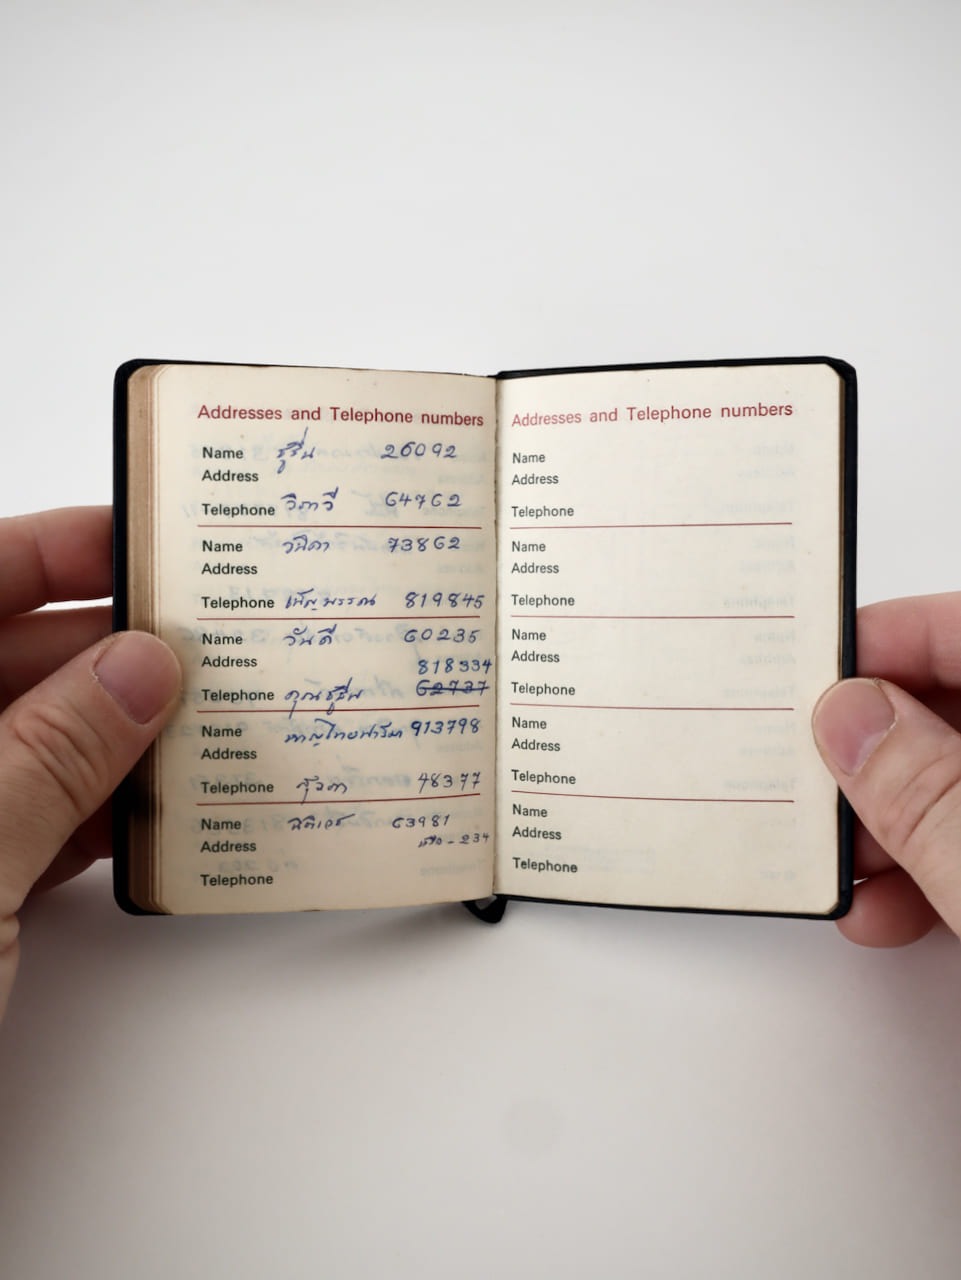 Addresses and Telephone numbers
Name ชูชื่น 26092
Address
Telephone วิภาวี 64762
Name วนิดา 73862
Address
Telephone เพ็ญพรรณ 819845
Name วันดี 60235
Address 818334
Telephone คุณชูชื่น 62737
Name 913798
Address
Telephone 48377
Name 63981
Address - 234
Telephone
Addresses and Telephone numbers
Name
Address
Telephone
Name
Address
Telephone
Name
Address
Telephone
Name
Address
Telephone
Name
Address
Telephone